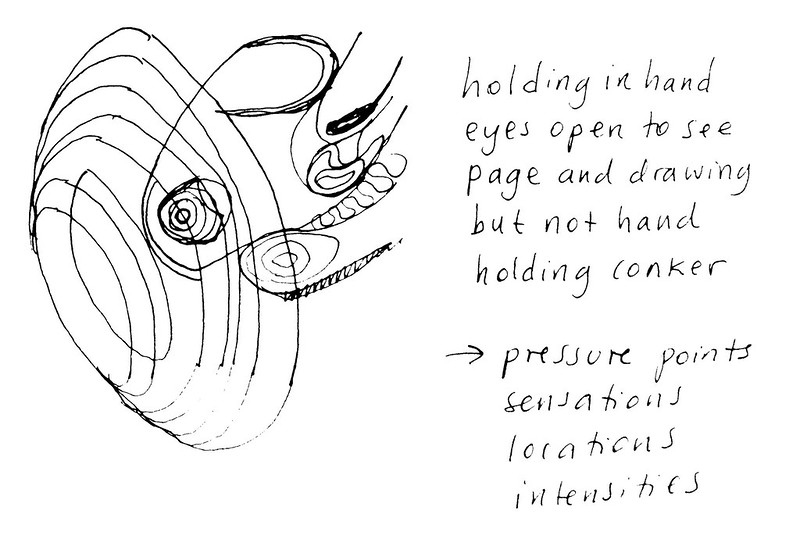 holding in hand
eyes open to see
page and drawing
but not hand
holding conker
→ pressure points
sensations
locations
intensities